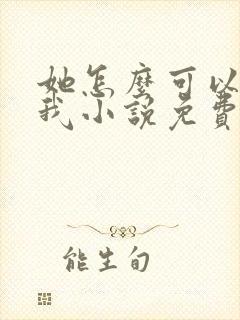 她怎麼可以
我小說免費
能生旬